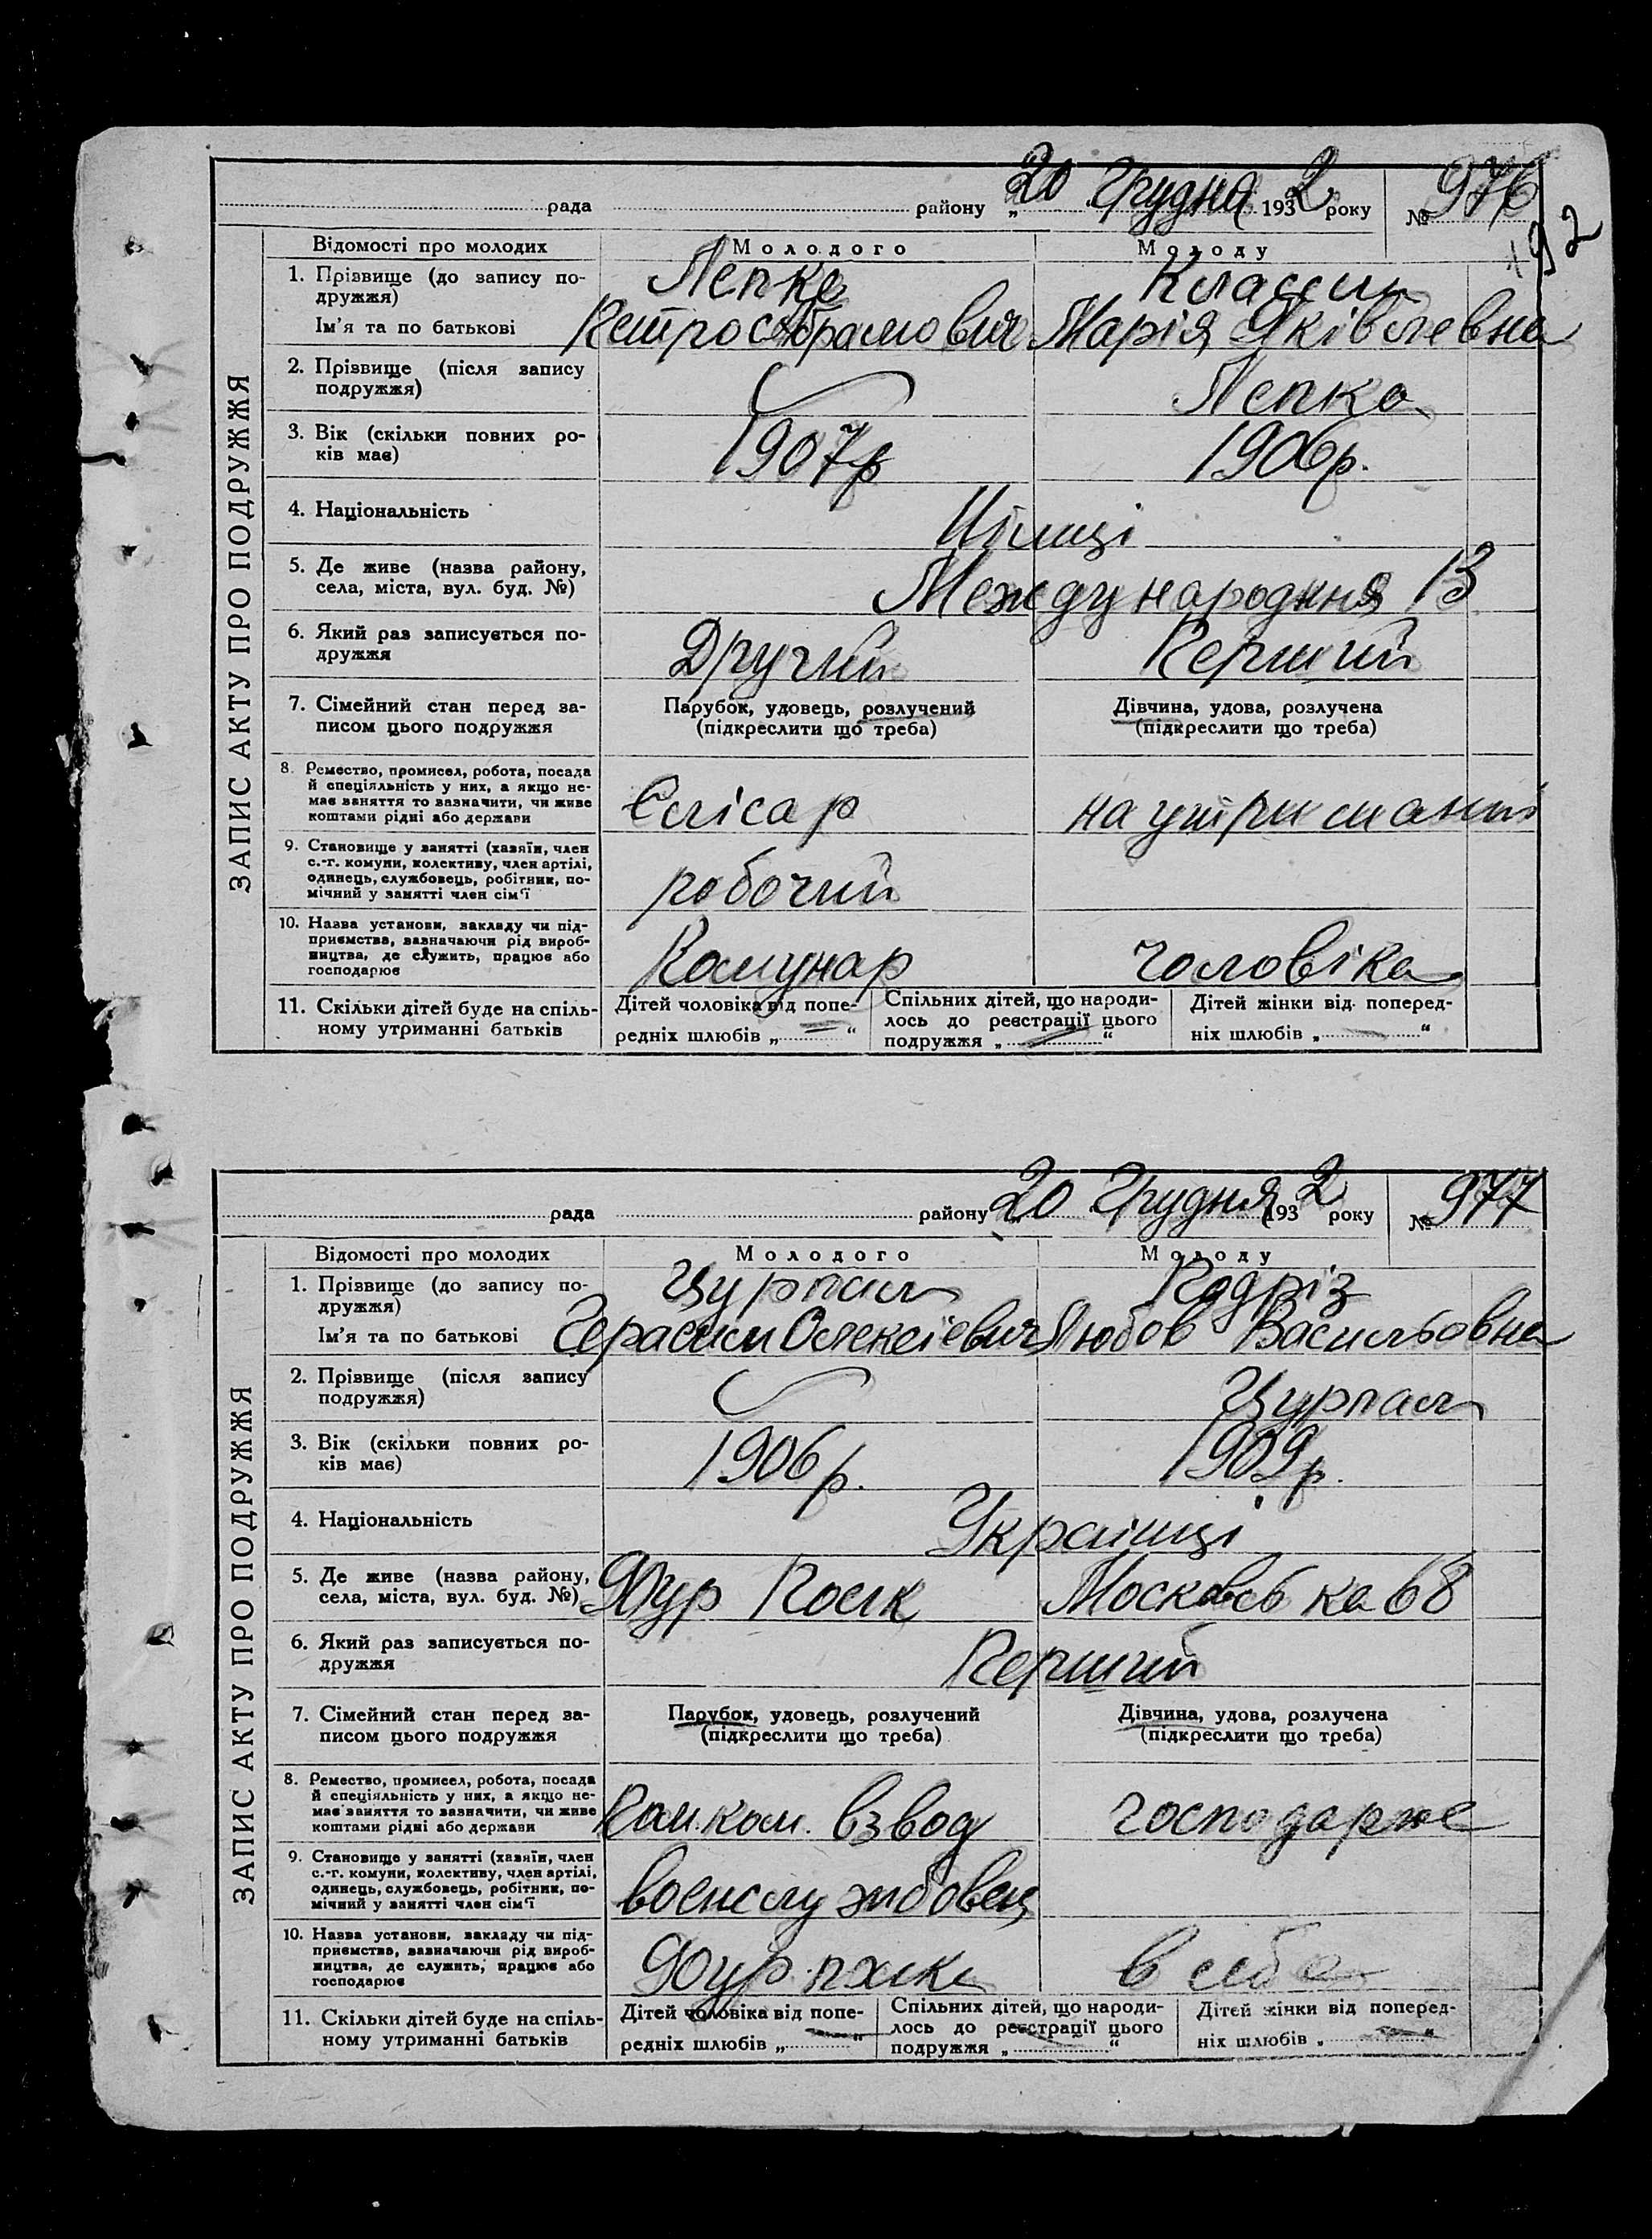 рада району „20 Грудня 1932 року № 976
192
Відомості про молодих Молодого Молоду
1. Прізвище (до запису по- Лепке Классен
дружжя)
Ім'я та по батькові Петро Абрамович Марія Яківлевна
2. Прізвище (після запису Лепке
подружжя)
3. Вік (скільки повних ро- 1907р 1906р.
ків має)
4. Національність Німці
5. Де живе (назва району, Международння 13
села, міста, вул. буд. №)
6. Який раз записується по- Другий Перший
дружжя
7. Сімейний стан перед за- Парубок, удовець, розлучений Дівчина, удова, розлучена
писом цього подружжя (підкреслити що треба) (підкреслити що треба)
8. Ремество, промисел, робота, посада
й спеціяльність у них, а якщо не-
має заняття то зазначити, чи живе Слісар на утриманні
коштами рідні або держави
9. Становище у занятті (хазяїн, член
с.-г. комуни, колективу, член артілі,
одинець, службовець, робітник, по- робочий
мічний у занятті член сім'ї
10. Назва установи, закладу чи під-
приємства, зазначаючи рід вироб-
ництва, де служить, працює або Комунар чоловіка
господарює
11. Скільки дітей буде на спіль- Дітей чоловіка від попе- Спільних дітей, що народи- Дітей жінки від поперед-
ному утриманні батьків редніх шлюбів „ — “ лось до реєстрації цього ніх шлюбів „ — “
подружжя „ — “
ЗАПИС АКТУ ПРО ПОДРУЖЖЯ
рада району 20 Грудня 1932 року № 977
Відомості про молодих Молодого Молоду
1. Прізвище (до запису по- Цурпал Подріз
дружжя)
Ім'я та по батькові Герасим Олексієвич Любов Васильовна
2. Прізвище (після запису Цурпал
подружжя)
3. Вік (скільки повних ро- 1906р. 1909р.
ків має)
4. Національність Українці
5. Де живе (назва району, 90 ур Полк Московська 68
села, міста, вул. буд. №)
6. Який раз записується по- Перший
дружжя
7. Сімейний стан перед за- Парубок, удовець, розлучений Дівчина, удова, розлучена
писом цього подружжя (підкреслити що треба) (підкреслити що треба)
8. Ремество, промисел, робота, посада
й спеціяльність у них, а якщо не-
має заняття то зазначити, чи живе Пом. ком. взвод господарює
коштами рідні або держави
9. Становище у занятті (хазяїн, член
с.-г. комуни, колективу, член артілі,
одинець, службовець, робітник, по- военслужбовец
мічний у занятті член сім'ї
10. Назва установи, закладу чи під-
приємства, зазначаючи рід вироб-
ництва, де служить, працює або 90 ур в себе
господарює
11. Скільки дітей буде на спіль- Дітей чоловіка від попе- Спільних дітей, що народи- Дітей жінки від поперед-
ному утриманні батьків редніх шлюбів „ — “ лось до реєстрації цього ніх шлюбів „ — “
подружжя „ — “
ЗАПИС АКТУ ПРО ПОДРУЖЖЯ